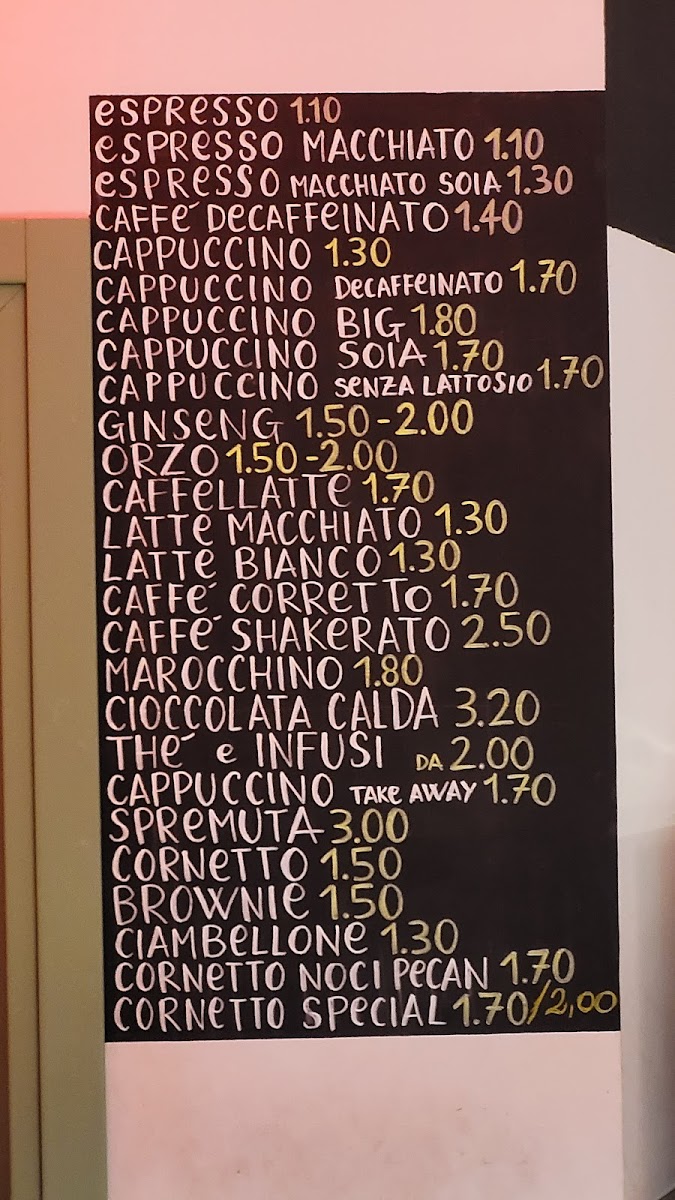 ESPRESSO 1.10
ESPRESSO MACCHIATO 1.10
ESPRESSO MACCHIATO SOIA 1.30
CAFFE' DECAFFEINATO 1.40
CAPPUCCINO 1.30
CAPPUCCINO DECAFFEINATO 1.70
CAPPUCCINO BIG 1.80
CAPPUCCINO SOIA 1.70
CAPPUCCINO SENZA LATTOSIO 1.70
GINSENG 1.50-2.00
ORZO 1.50-2.00
CAFFELLATTE 1.70
LATTE MACCHIATO 1.30
LATTE BIANCO 1.30
CAFFE' CORRETTO 1.70
CAFFE' SHAKERATO 2.50
MAROCCHINO 1.80
CIOCCOLATA CALDA 3.20
THE' e INFUSI DA 2.00
CAPPUCCINO TAKE AWAY 1.70
SPREMUTA 3.00
CORNETTO 1.50
BROWNIE 1.50
CIAMBELLONE 1.30
CORNETTO NOCI PECAN 1.70
CORNETTO SPECIAL 1.70/2,00